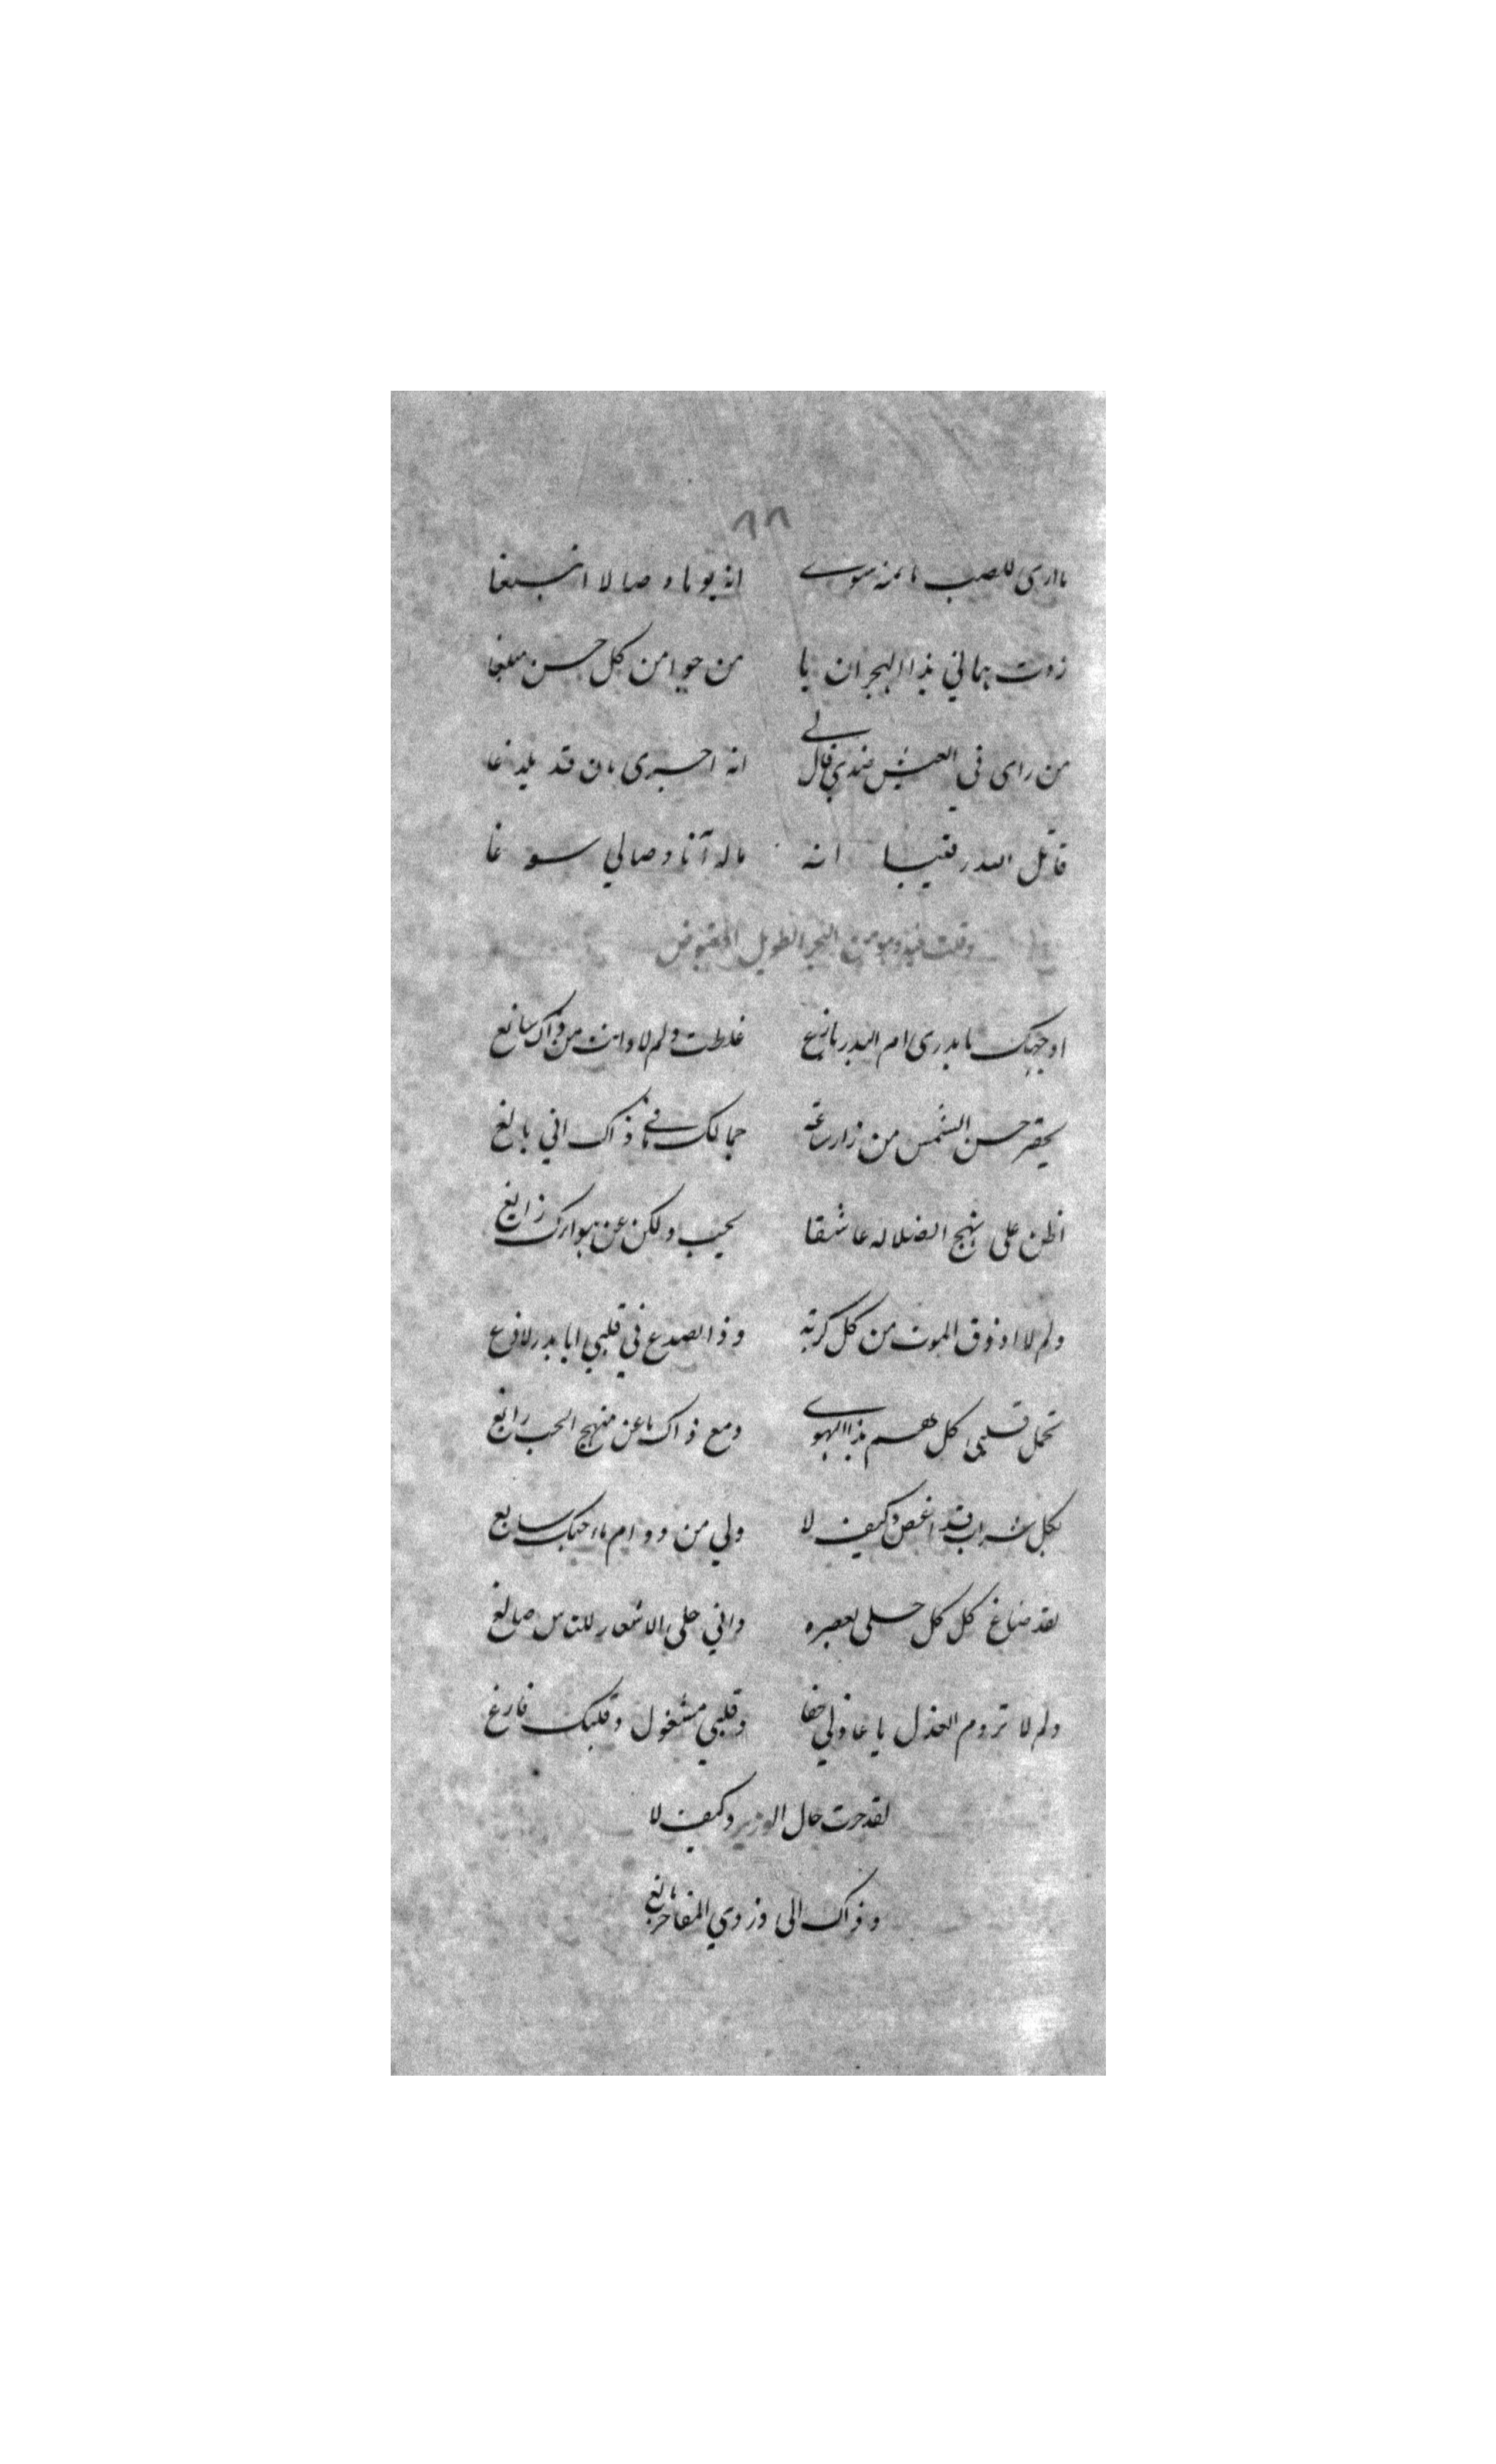 ٨٨
ما ارى للصب مامنه سوى انه يوما وصالا ابتغا
زدت همانى بذا الهجران يا من حوا من كل حسن مبلغا
من راى فى العيش ضدى قال لى انه احرى بان قد يلدغا
قاتل الله رقيبا انه ماله آنا وصالى سوغا
وقلت فيه وهو من البحر الطويل المقبوض
اوجهك يا بدرى ام البدر بازغ غلطت ولم لا وانت من ذاك سابغ
يحقر حسن الشمس من زار ساعة جمالك فى ذاك انى بالغ
اظن على نهج الضلاله عاشقا يحيب ولكن عن هواك زايغ
ولم لا اذوق الموت من كل كربة وذا الصدغ فى قلبى ايا بدر لادغ
تحمل قلبى كل هم بذا الهوى ومع ذاك ما عن منهج الحب رايغ
بكل شراب قد اغص وكيف لا ولى من دوام سايغ
لقد صاغ كل كل حلى لعصره وانى حلى الاشعار للناس صايغ
ولم لا تروم العذل يا عاذلى خفا وقلبى مشغول وقلبك فارغ
لقد حرت حال الوزير وكيف لا
وذاك الى وزوى المفاخر بالغ